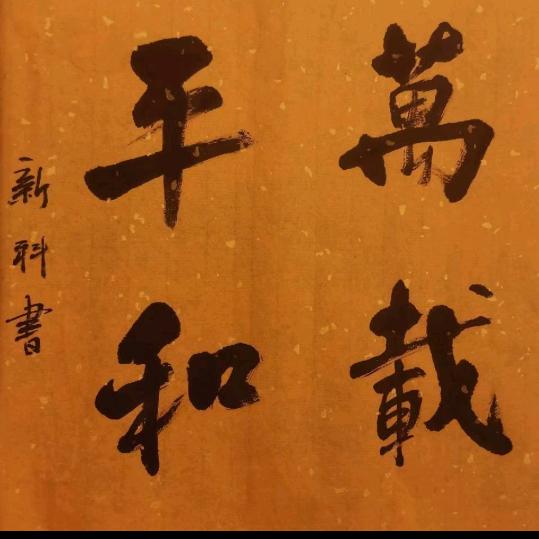 萬載
平和
新科書